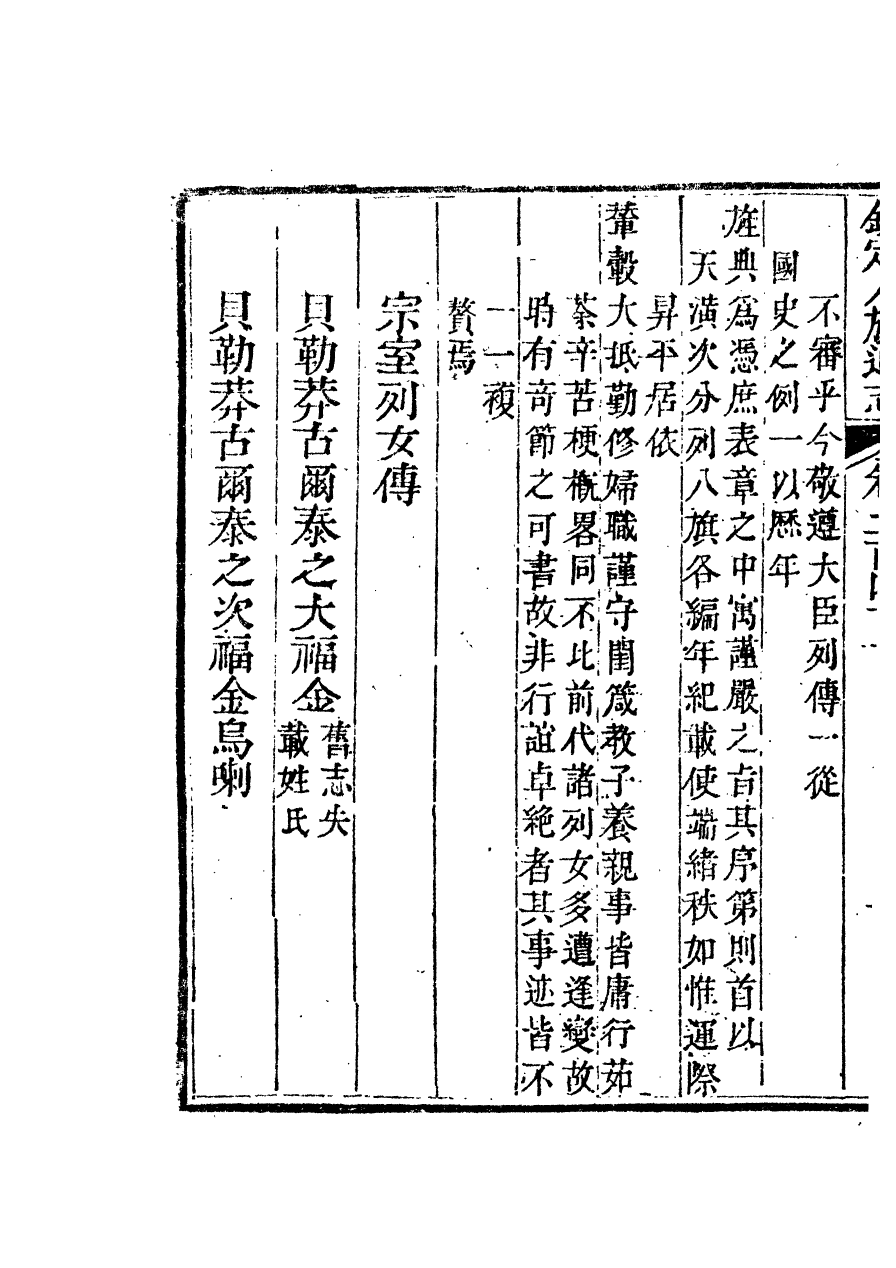 欽定八旗通志
不審乎今敬遵大臣列傳一從
國史之例一以歷年
旌典爲憑庶表章之中寓謹嚴之旨其序第則首以
天潢次分列八旗各編年紀載使端緒秩如惟運際
昇平居依
輦轂大抵勤修婦職謹守閨箴教子養親事皆庸行茹
荼辛苦梗概畧同不比前代諸列女多遭逢變故
時有奇節之可書故非行誼卓絶者其事迹皆不
一一複
贅焉
宗室列女傳
貝勒莽古爾泰之大福金舊志失
載姓氏
貝勒莽古爾泰之次福金烏喇